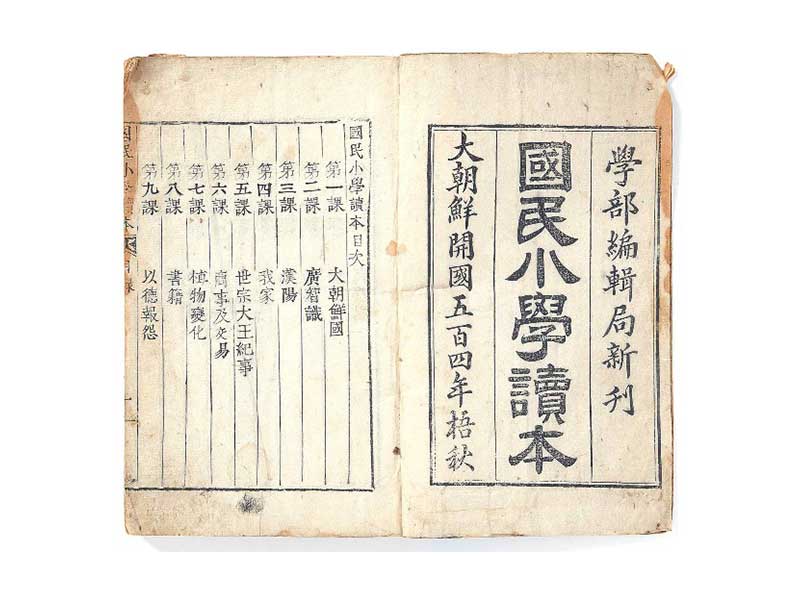 學部編輯局新刊
國民小學讀本
大朝鮮開國五百四年梧秋
國民小學讀本目次
第一課 大朝鮮國
第二課 廣智識
第三課 漢陽
第四課 我家
第五課 世宗大王紀事
第六課 商事及交易
第七課 植物變化
第八課 書籍
第九課 以德報怨
國民小學讀本